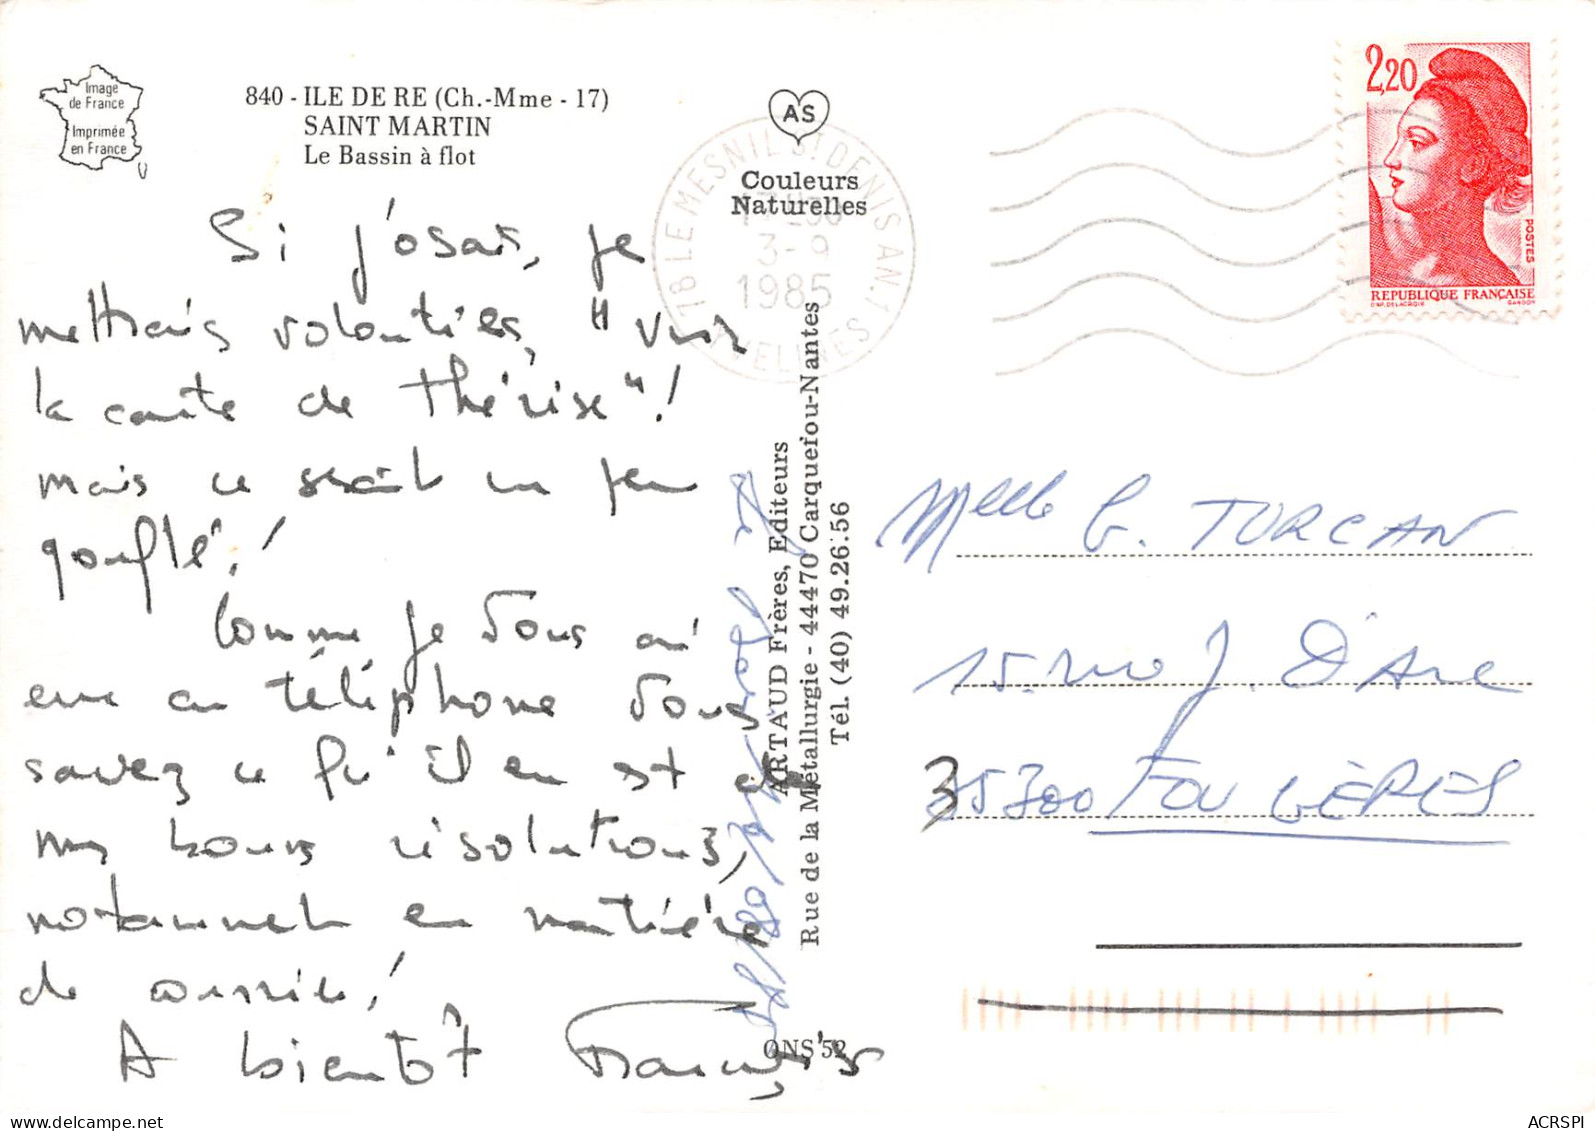 Image
de France
Imprimée
en France
840 - ILE DE RE (Ch.-Mme - 17)
SAINT MARTIN
Le Bassin à flot
AS
Couleurs
Naturelles
78 LE MESNIL ST DENIS AN.1
3-9
1985
YVELINES
2,20
POSTES
REPUBLIQUE FRANÇAISE
D'AP. DELACROIX GANDON
Si j'osais, je
mettrais volontiers, "voir
la carte de Thérèse"!
mais ce serait un peu
gonflé!
Comme je vous ai
eue au téléphone vous
savez ce qu'il en est de
mes bonnes résolutions,
notamment en matière
de courrier!
A bientôt François
ARTAUD Frères, Editeurs
Rue de la Métallurgie - 44470 Carquefou-Nantes
Tél. (40) 49.26.56
ONS 52
Melle G. TURCAN
15. rue J. D'Arc
35300 FOUGÈRES
ACRSPI